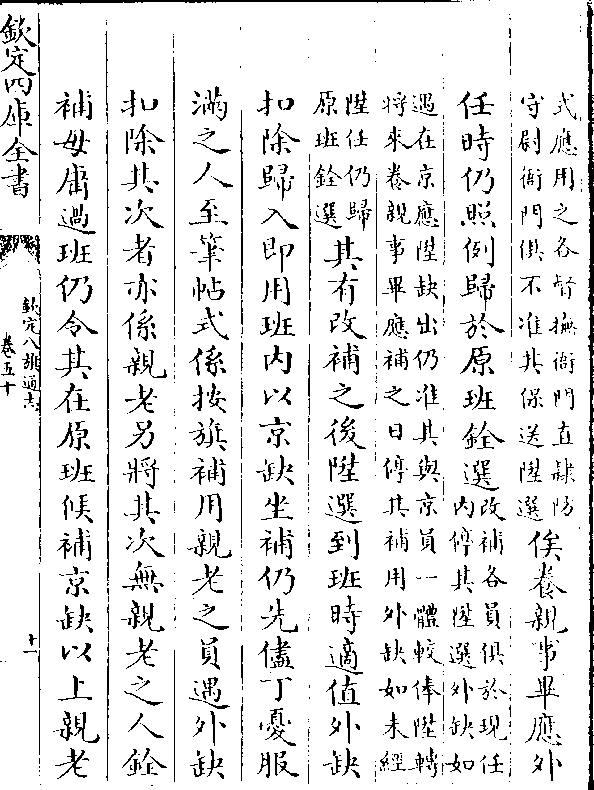 式應用之各督撫衙門直隸防
守尉衙門俱不准其保送陞選
俟養親事畢應外
任時仍照例歸於原班銓選
改補各員俱於現任
内停其陞選外缺如
遇在京應陞缺出仍准其與京員一體較俸陞轉
將來養親事畢應補之日停其補用外缺如未經
陞任仍歸
原班銓選
其有改補之後陞選到班時適值外缺
扣除歸入即用班内以京缺坐補仍先儘丁憂服
滿之人至筆帖式係按旗補用親老之員遇外缺
扣除其次者亦係親老另將其次無親老之人銓
補毋庸過班仍令其在原班候補京缺以上親老
欽定四庫全書
欽定八旗通志
卷五十
十一